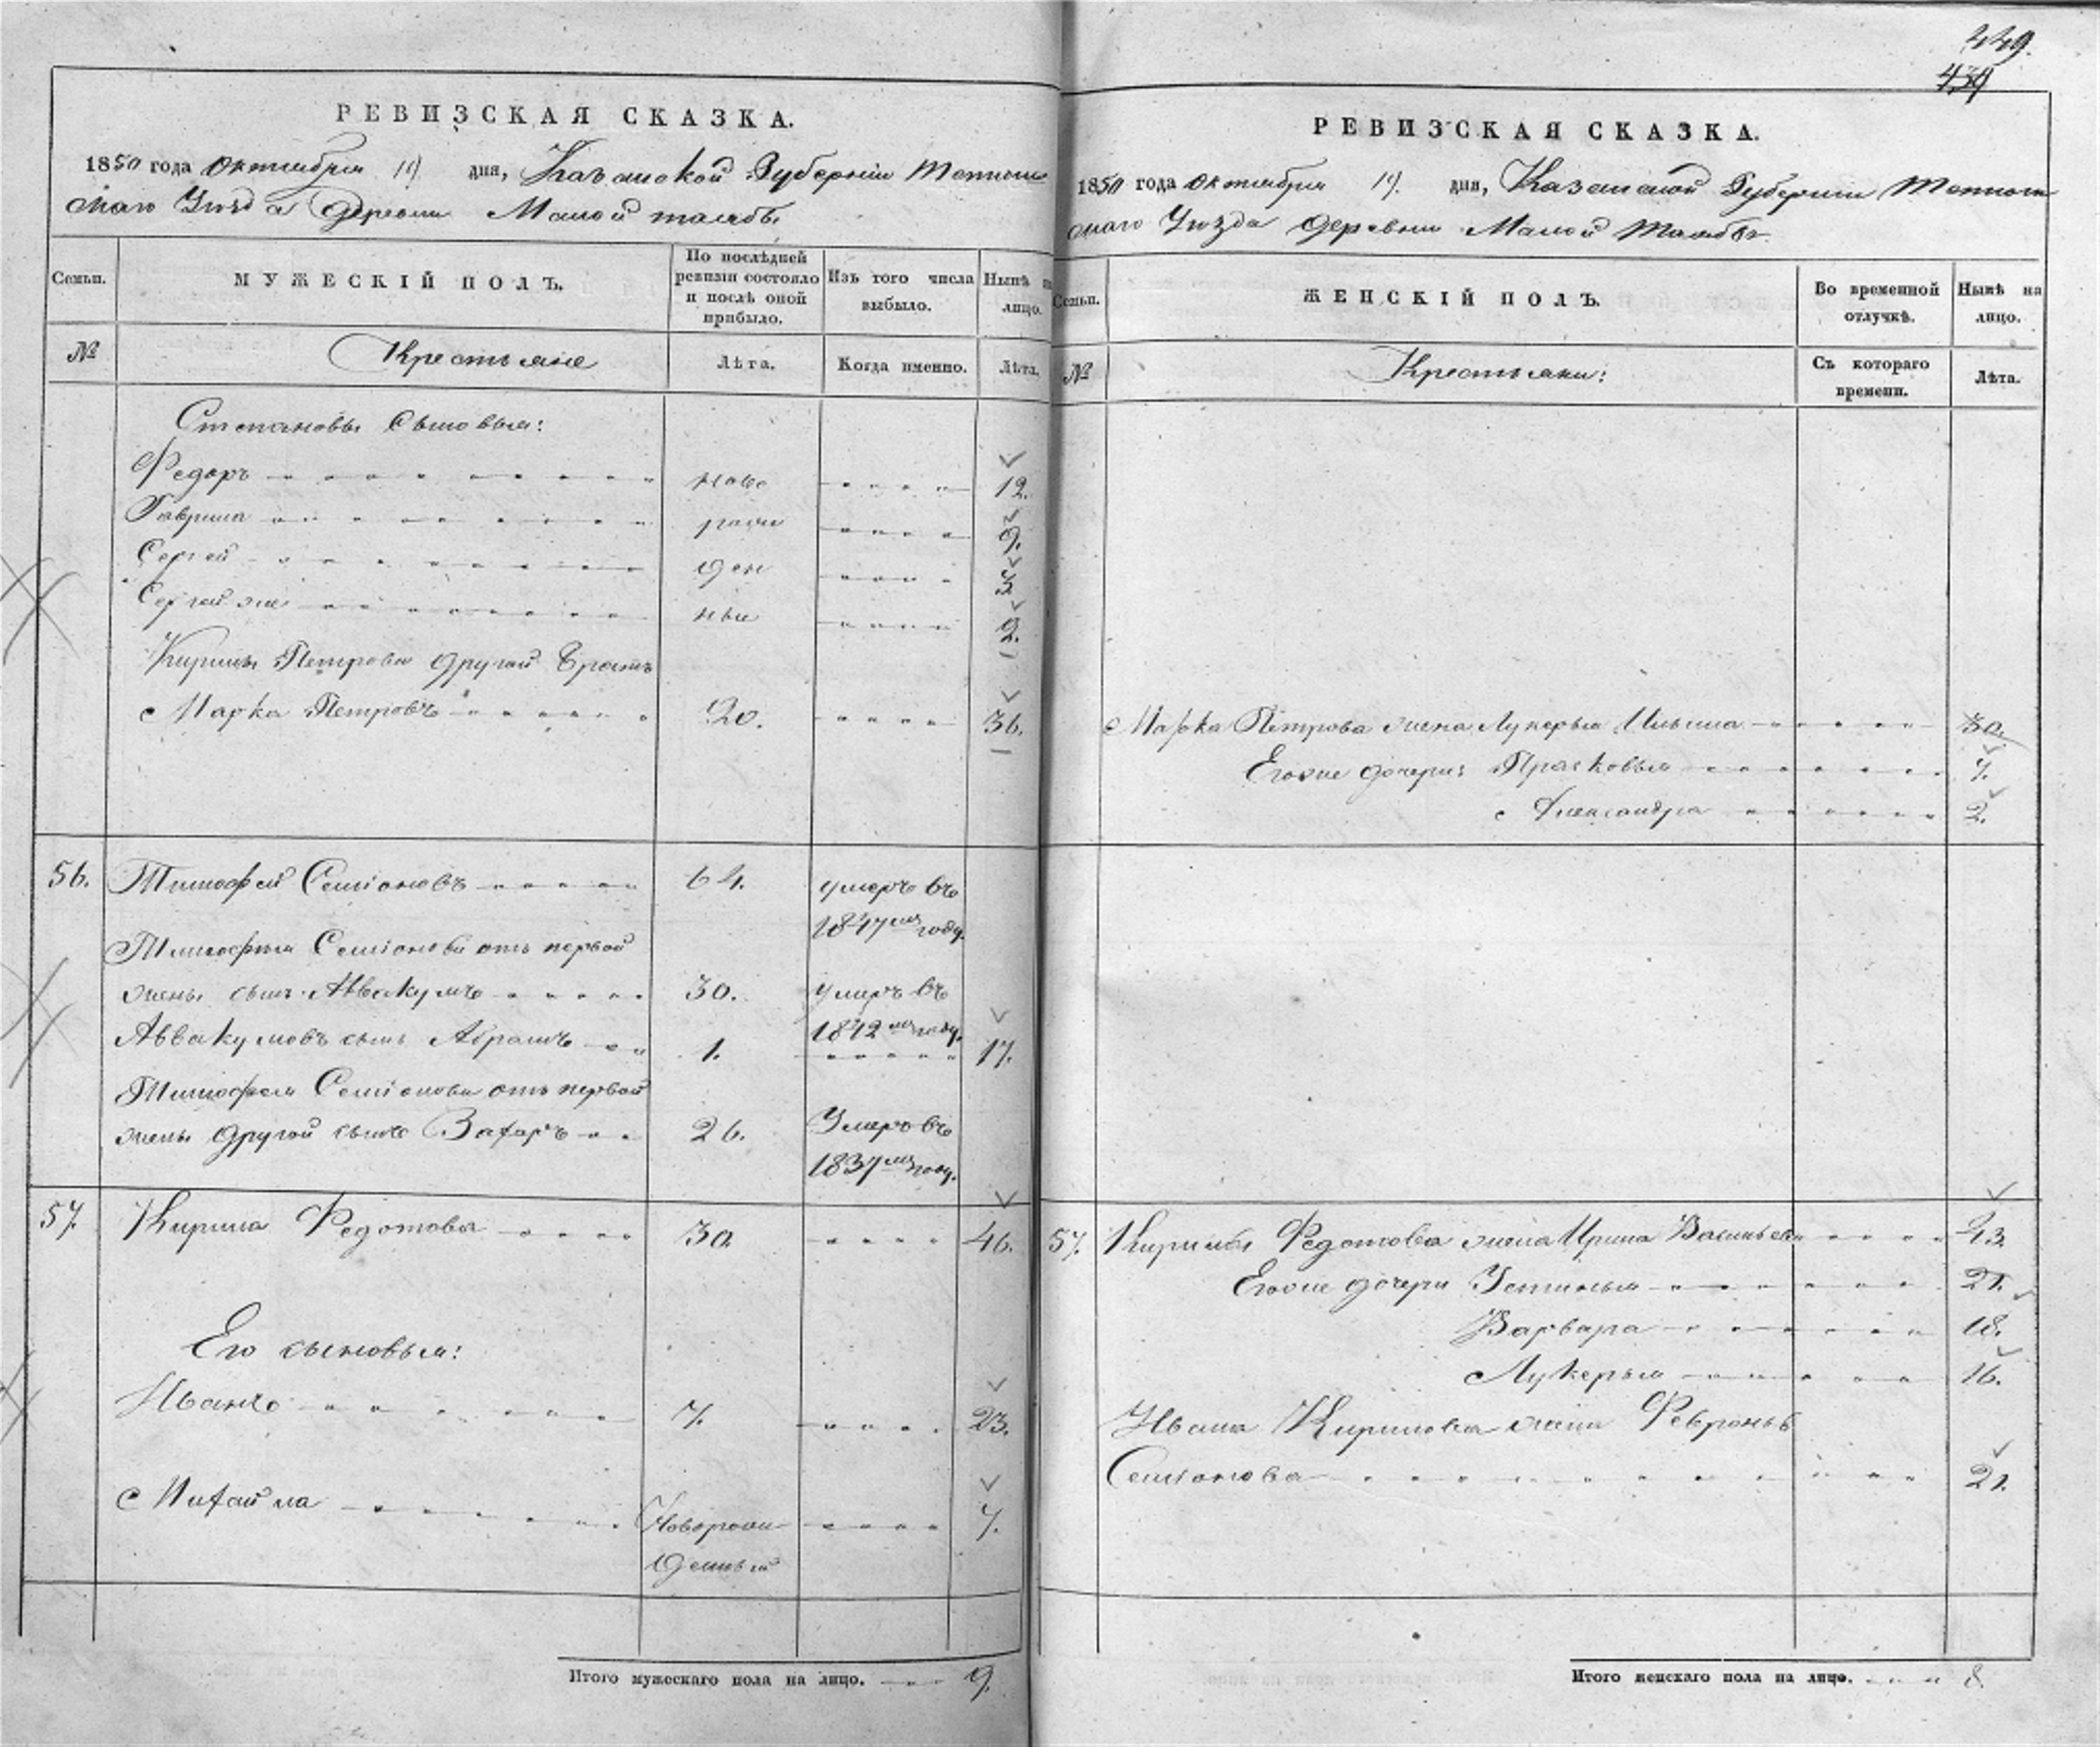 449.
439
РЕВИЗСКАЯ СКАЗКА.
1850 года Октября 19 дня, Казанской Губерніи Тетюш
скаго Уѣзда Деревни Малой
Семьи. МУЖЕСКІЙ ПОЛЪ. По послѣдней ревизіи состояло и послѣ оной прибыло. Изъ того числа выбыло. Нынѣ на лицо.
№ Крестьяне Лѣта. Когда именно. Лѣта.
Степановы сыновья:
Федоръ ново 12.
Гаврила рож 9.
Сергей ден 3
Сергей же ные 2.
Кирилы Петрова другой братъ
Марка Петровъ 20. 36.
56. Тимофей Семіоновъ 64. умеръ въ
1847мъ году.
Тимофея Семіонова отъ первой
жены сынъ Аввакумъ 30. умеръ въ
1842мъ году.
Аввакумовъ сынъ Абрамъ 1. 17.
Тимофея Семіонова отъ первой
жены другой сынъ Захаръ 26. Умеръ въ
1837мъ году.
57. Кирила Федотовъ 30 46.
Его сыновья:
Иванъ 7. 23.
Михайла Новорож 7.
денный
Итого мужескаго пола на лицо. 9.
РЕВИЗСКАЯ СКАЗКА.
1850 года Октября 19. дня, Казанской Губерніи Тетюш
скаго Уѣзда Деревни Малой
Семьи. ЖЕНСКІЙ ПОЛЪ. Во временной отлучкѣ. Нынѣ на лицо.
№ Крестьянки: Съ котораго времени. Лѣта.
Марка Петрова жена Лукерья Ильина 30.
Егоже дочери: Прасковья 7.
Александра 2.
57. Кирилы Федотова жена Ирина Васильева 43.
Егоже дочери Устинья 21.
Варвара 18.
Лукерья 16.
Ивана Кирилова жена Февронья
Семіонова 21.
Итого женскаго пола на лицо. 8.